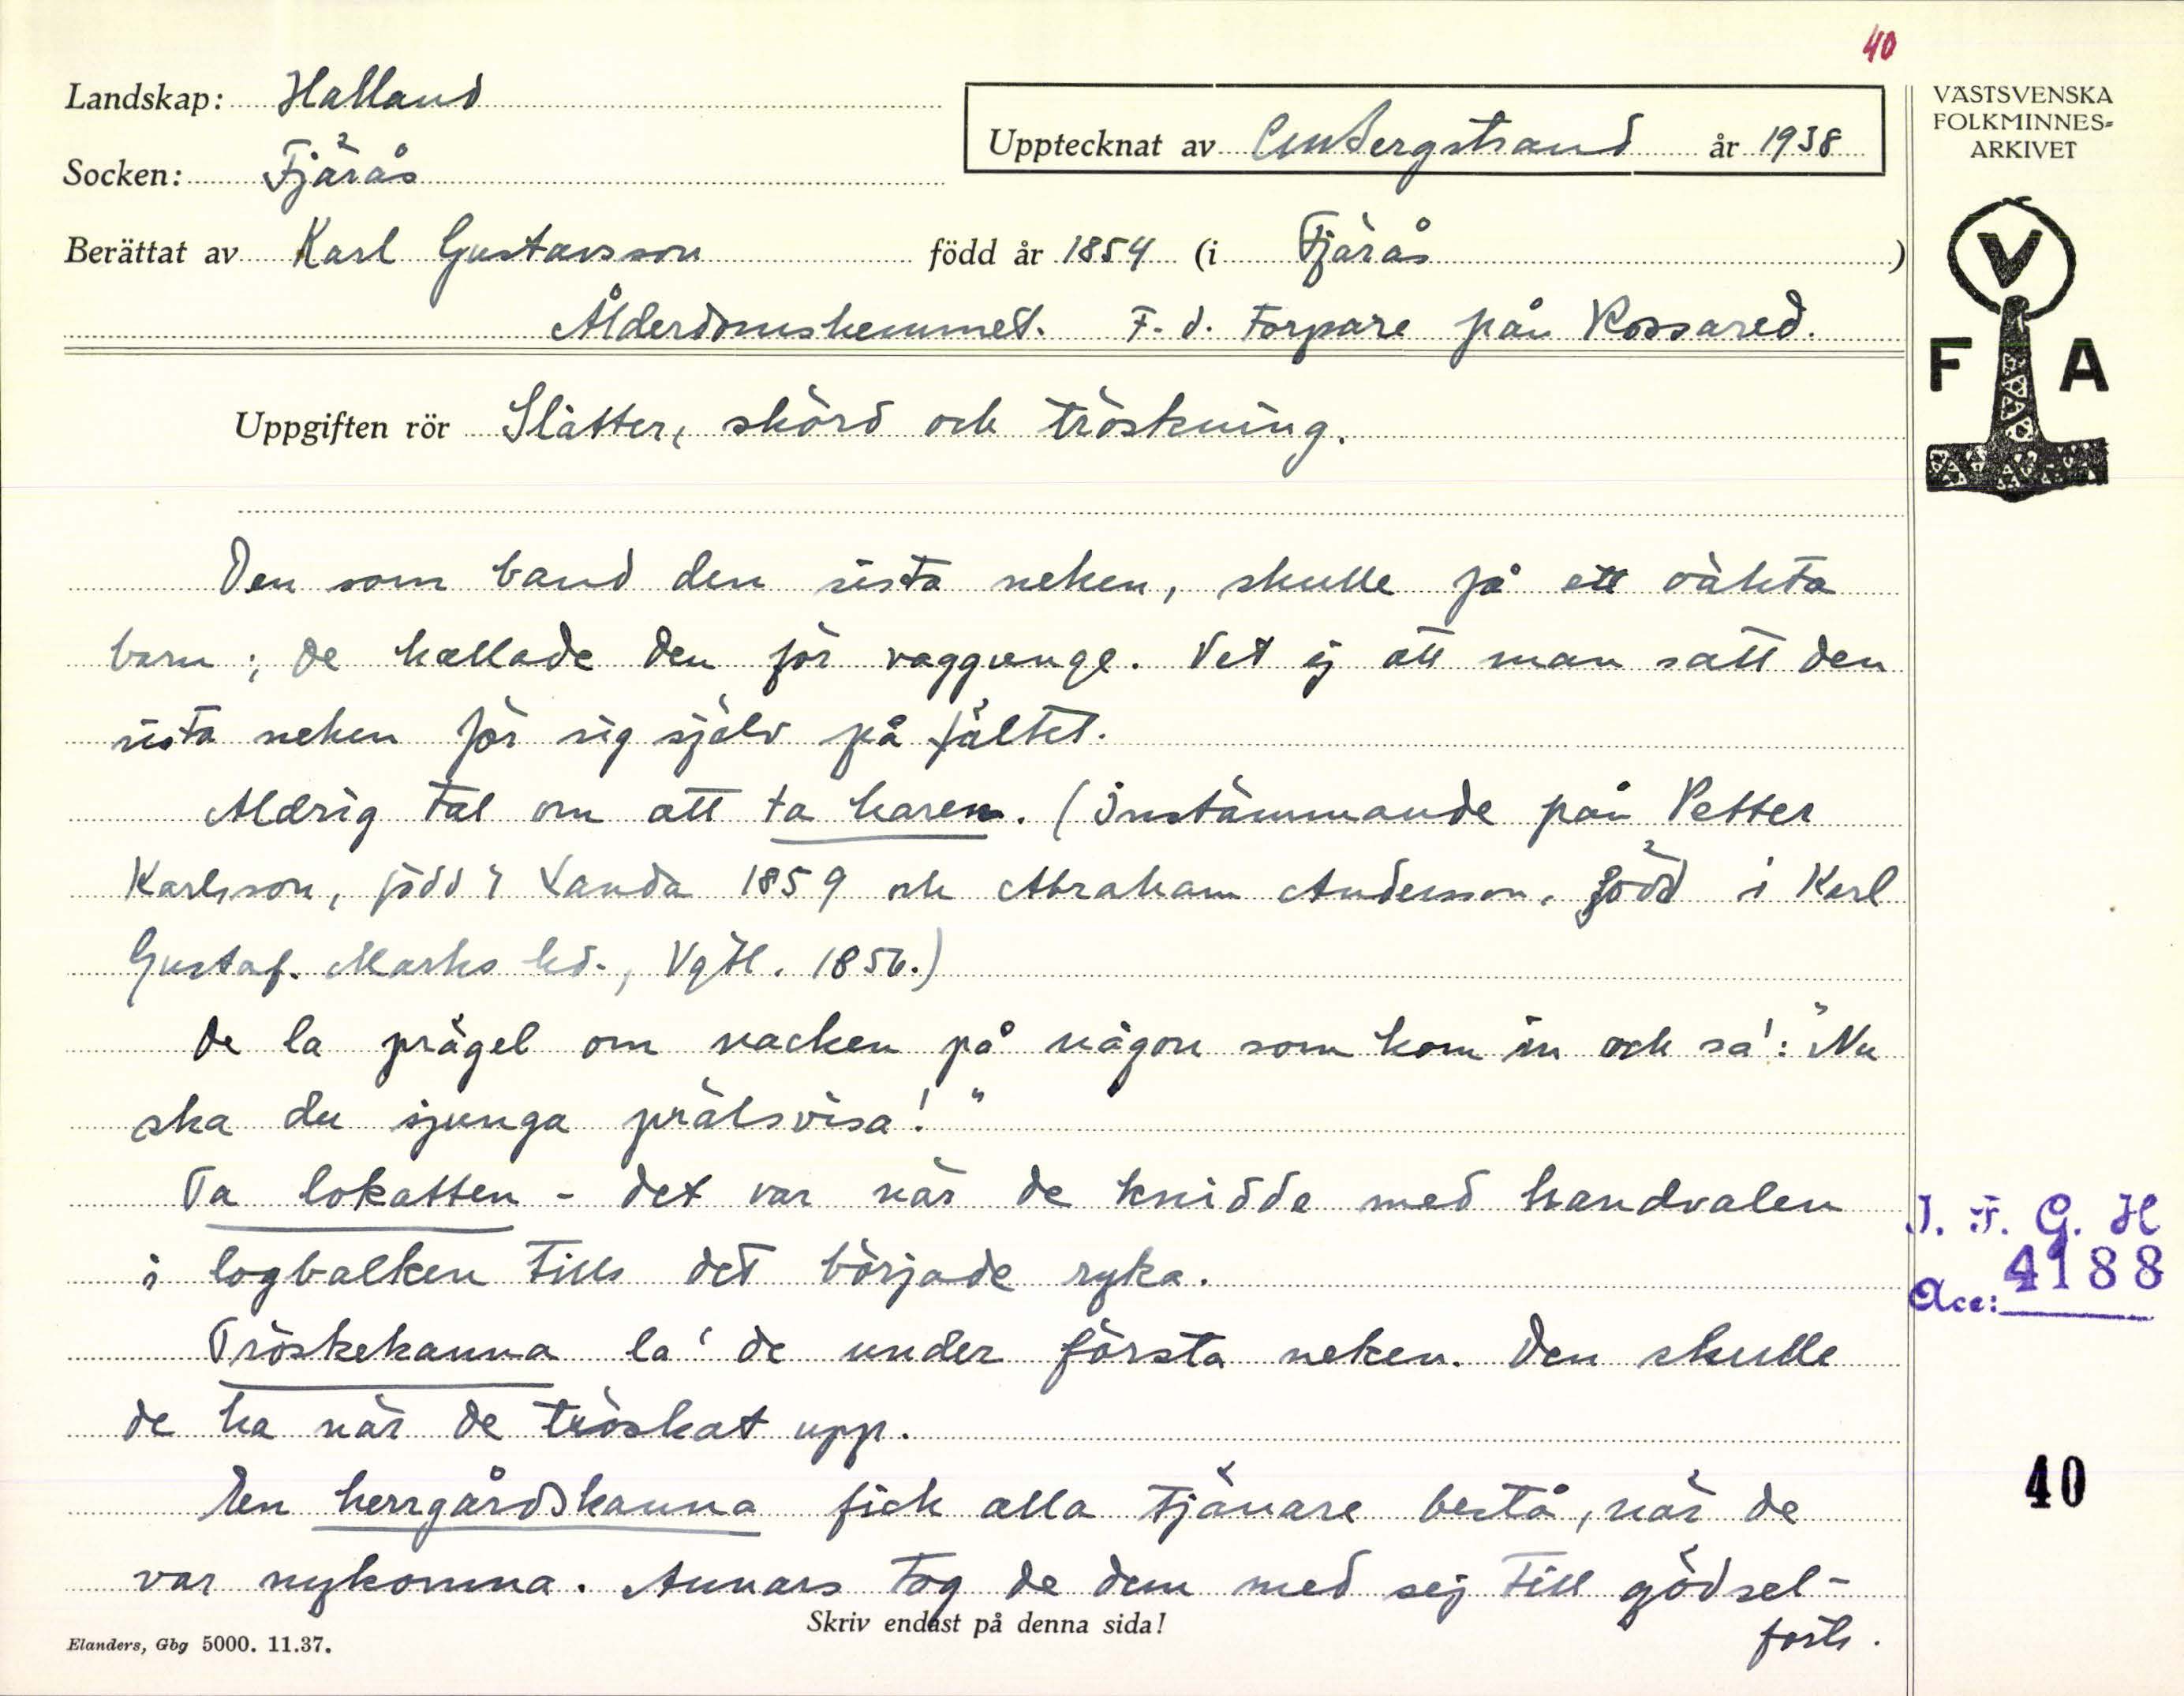 40
Landskap: Halland
Socken: Fjärås
Upptecknat av CMBergstrand år 1938
VÄSTSVENSKA
FOLKMINNES-
ARKIVET
Berättat av Karl Gustavsson född år 1854 (i Fjärås)
Ålderdomshemmet. F. d. Torpare från Rossared.
V
F A
Uppgiften rör Slåtter, skörd och tröskning.
Den som band den sista neken, skulle få ett oäkta
barn; de kallade den för vaggunge. Vet ej att man satt den
sista neken för sig själv på fältet.
Aldrig tal om att ta haren. (Instämmande från Petter
Karlsson, född i Landa 1859 och Abraham Andersson, född i Karl
Gustaf. Marks hd., Vgtl. 1856.)
De la prägel om nacken på någon som kom in och sa': "Nu
ska du sjunga prälsvisa!"
Ta lokatten - det var när de knidde med handvalen
i logbalken tills det började ryka.
Tröskekanna la' de under första neken. Den skulle
de ha när de tröskat upp.
En herrgårdskanna fick alla tjänare bestå, när de
var nykomna. Annars tog de dem med sej till gödsel-
forts.
I. F. G. H
Acc: 4188
40
Skriv endast på denna sida!
Elanders, Gbg 5000. 11.37.